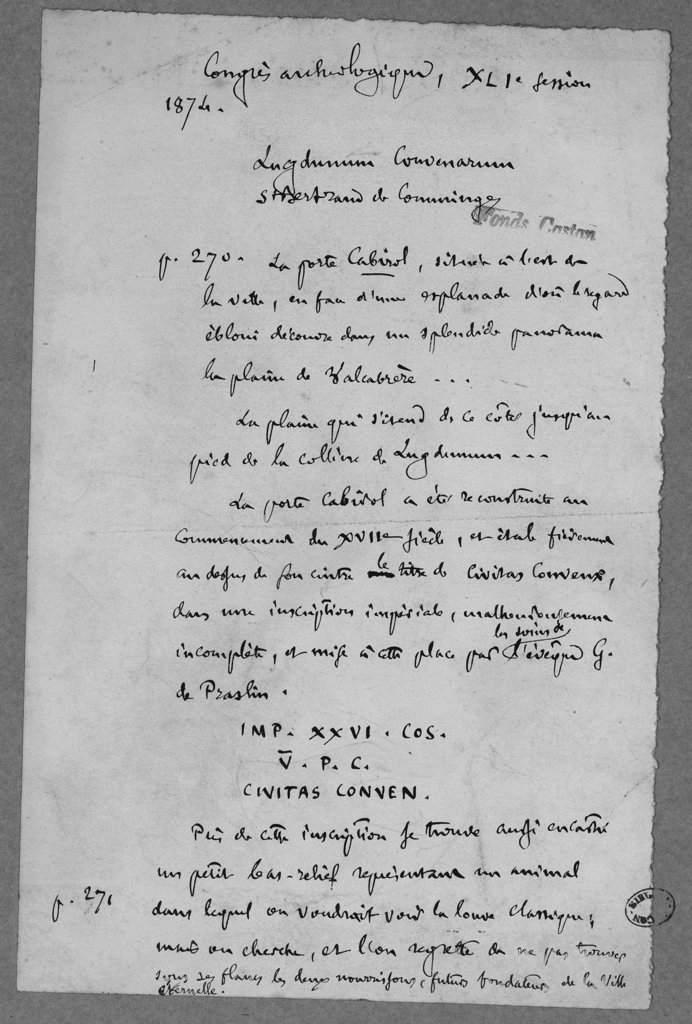 Congrès archéologique, XLIe session
1874.
Lugdunum Convenarum
St Bertrand de Comminges
Fonds Castan
p. 270. La porte Cabirol, située à l'est de
la ville, en face d'une esplanade d'où le regard
ébloui découvre dans un splendide panorama
la plaine de Valcabrère ...
La plaine qui s'étend de ce côté jusqu'au
pied de la colline de Lugdunum ...
La porte Cabirol a été reconstruite au
commencement du XVIIe siècle, et étale fièrement
au dessus de son cintre le titre de Civitas Convenæ,
dans une inscription impériale, malheureusement
incomplète, et mise à cette place par les soins de l'évêque G.
de Praslin.
IMP. XXVI. COS.
V̅. P. C.
CIVITAS CONVEN.
Près de cette inscription se trouve aussi encastré
un petit bas-relief représentant un animal
p. 271 dans lequel on voudrait voir la louve classique;
mais on cherche, et l'on regrette de ne pas trouver
sous ses flancs les deux nourrissons, futurs fondateurs de la Ville
éternelle.